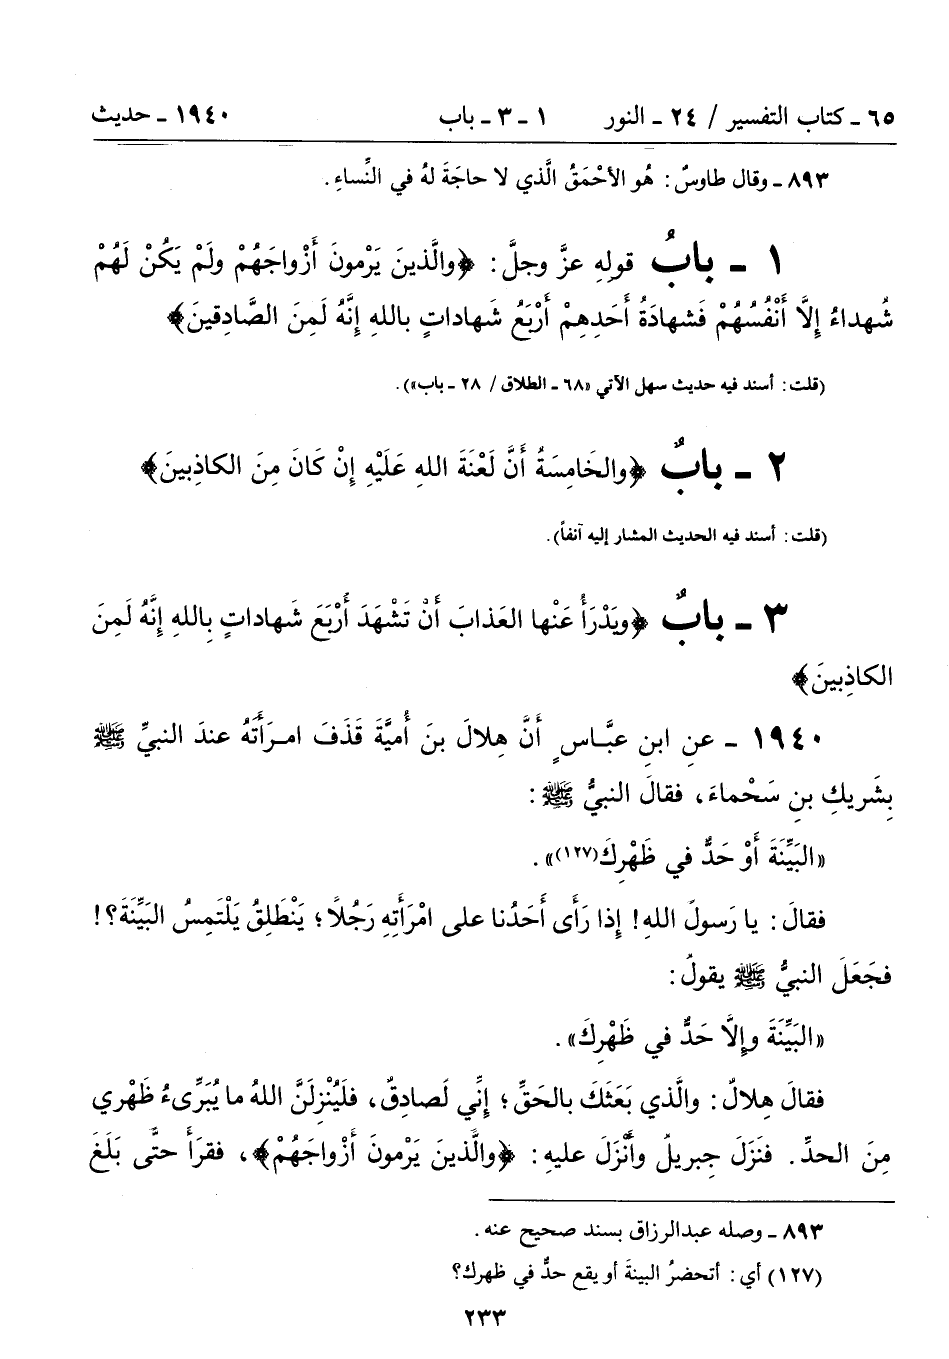 ٦٥ ـ كتاب التفسير / ٢٤ ـ النور ١ ـ ٣ ـ باب ١٩٤٠ ـ حديث
٨٩٣ ـ وقال طاوسٌ: هُو الأحْمَقُ الَّذي لا حاجَةَ لهُ في النِّساءِ.
١ ـ بابُ قولِهِ عزَّ وجلَّ: ﴿والَّذينَ يَرْمونَ أَزْواجَهُمْ ولَمْ يَكُنْ لَهُمْ
شُهداءُ إِلَّا أَنْفُسُهُمْ فَشهادَةُ أَحَدِهِمْ أَرْبَعُ شَهاداتٍ باللهِ إِنَّهُ لَمِنَ الصَّادِقينَ﴾
(قلت: أسند فيه حديث سهل الآتي «٦٨ ـ الطلاق / ٢٨ ـ باب»).
٢ ـ بابٌ ﴿والخَامِسَةُ أَنَّ لَعْنَةَ اللهِ عَلَيْهِ إِنْ كَانَ مِنَ الكاذِبينَ﴾
(قلت: أسند فيه الحديث المشار إليه آنفاً).
٣ ـ بابٌ ﴿ويَدْرَأُ عَنْها العَذابَ أَنْ تَشْهَدَ أَرْبَعَ شَهاداتٍ بِاللهِ إِنَّهُ لَمِنَ
الكاذِبينَ﴾
١٩٤٠ ـ عنِ ابنِ عبَّاسٍ أَنَّ هِلالَ بنَ أُميَّةَ قَذَفَ امرَأَتَهُ عندَ النبيِّ ﷺ
بِشَريكِ بنِ سَحْماءَ، فقالَ النبيُّ ﷺ:
«البَيِّنَةَ أَوْ حَدٌّ في ظَهْرِكَ(١٢٧)».
فقالَ: يا رَسولَ اللهِ! إِذا رَأَى أَحَدُنا على امْرَأَتِهِ رَجُلًا؛ يَنْطَلِقُ يَلْتَمِسُ البَيِّنَةَ؟!
فجَعَلَ النبيُّ ﷺ يقولُ:
«البَيِّنَةَ وإِلَّا حَدٌّ في ظَهْرِكَ».
فقالَ هِلالٌ: والَّذي بَعَثَكَ بالحَقِّ؛ إِنِّي لَصادِقٌ، فلَيُنْزِلَنَّ اللهُ ما يُبَرِّىءُ ظَهْري
مِنَ الحدِّ. فنَزَلَ جِبريلُ وأَنْزَلَ عليهِ: ﴿والَّذينَ يَرْمونَ أَزْواجَهُمْ﴾، فقرَأَ حتَّى بَلَغَ
٨٩٣ ـ وصله عبدالرزاق بسند صحيح عنه.
(١٢٧) أي: أتحضرُ البينةَ أو يقع حدٌّ في ظهرك؟
٢٣٣